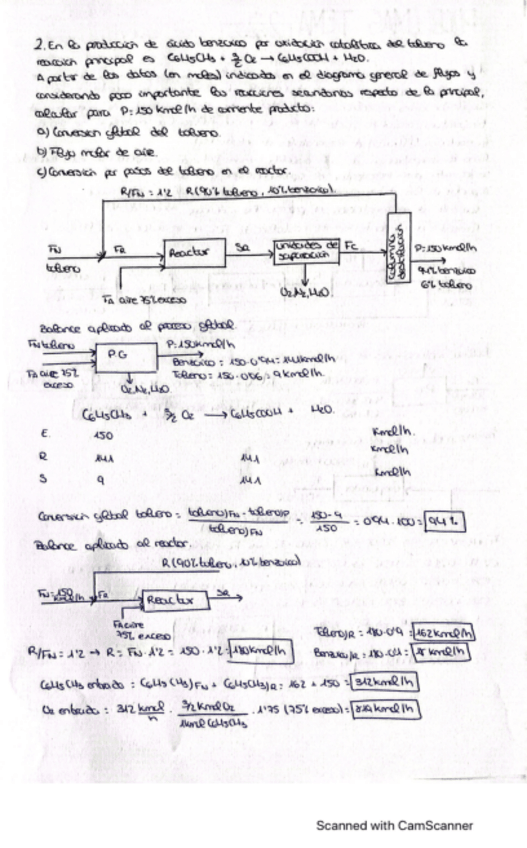 2. En la producción de ácido benzoico por oxidación catalítica del tolueno la
reacción principal es C6H5CH3 + 3/2 O2 → C6H5COOH + H2O.
A partir de los datos (en moles) indicados en el diagrama general de flujos y
considerando poco importante las reacciones secundarias respecto de la principal,
calcular para P=150 kmol/h de corriente producto:
a) Conversión global del tolueno.
b) Flujo molar de aire
c) Conversión por paso del tolueno en el reactor.
R/FN = 1'2 R(90% tolueno, 10% benzoico)
FN FR Reactor SR unidades de separación FC P=150 kmol/h
tolueno 94% benzoico
6% tolueno
FA aire 75% exceso O2, N2, H2O
Balance aplicado al proceso global
FN tolueno P=150 kmol/h
P.G Benzoico = 150·0'94 = 141 kmol/h
FA aire 75% exceso Tolueno = 150·0'06 = 9 kmol/h
O2, N2, H2O
C6H5CH3 + 3/2 O2 → C6H5COOH + H2O
E. 150 Kmol/h
R 141 141 Kmol/h
S 9 141 Kmol/h
Conversión global tolueno = tolueno)FN - tolueno)P / tolueno)FN = 150-9 / 150 = 0'94 · 100 = 94%
Balance aplicado al reactor.
R(90% tolueno, 10% benzoico)
FN=150 kmol/h FR Reactor SR
FA aire
75% exceso
Tolueno)R = 180·0'9 = 162 kmol/h
R/FN = 1'2 → R = FN·1'2 = 150·1'2 = 180 kmol/h Benzoico)R = 180·0'1 = 18 kmol/h
C6H5CH3 entrada : C6H5CH3)FN + C6H5CH3)R = 162 + 150 = 312 kmol/h
O2 entrada : 312 kmol/h · 3/2 kmol O2 / 1 kmol C6H5CH3 · 1'75 (75% exceso) = 819 kmol/h
Scanned with CamScanner